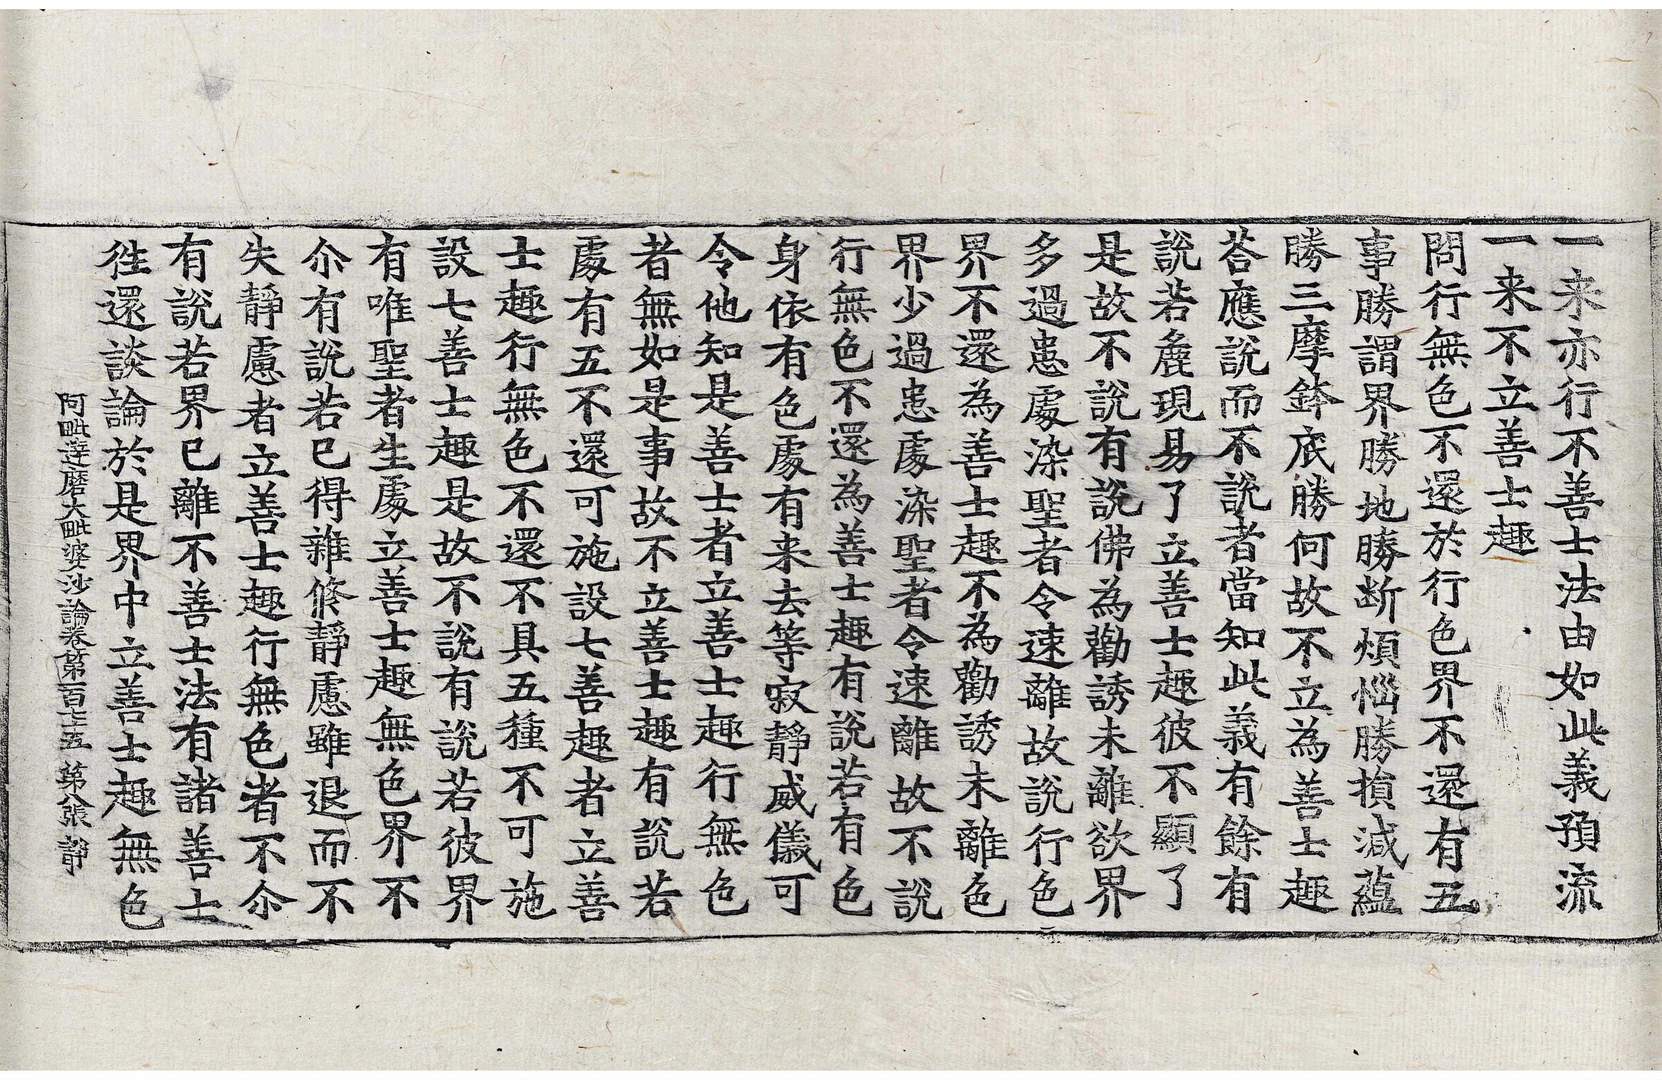 一来亦行不善士法由如此義預流
一来不立善士趣
問行無色不還於行色界不還有五
事勝謂界勝地勝斷煩惱勝損減蘊
勝三摩鉢底勝何故不立為善士趣
荅應說而不說者當知此義有餘有
說若麁現易了立善士趣彼不顯了
是故不說有說佛為勸誘未離欲界
多過患處染聖者令速離故說行色
界不還為善士趣不為勸誘未離色
界少過患處染聖者令速離故不說
行無色不還為善士趣有說若有色
身依有色處有来去等寂靜威儀可
令他知是善士者立善士趣行無色
者無如是事故不立善士趣有說若
處有五不還可施設七善趣者立善
士趣行無色不還不具五種不可施
設七善士趣是故不說有說若彼界
有唯聖者生處立善士趣無色界不
尒有說若已得雜修靜慮雖退而不
失靜慮者立善士趣行無色者不尒
有說若界已離不善士法有諸善士
徃還談論於是界中立善士趣無色
阿毗達磨大毗婆沙論卷第一百七十五 第八張 靜